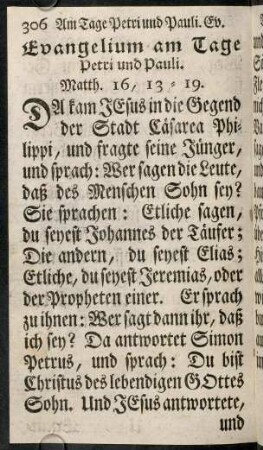 306 Am Tage Petri und Pauli. Ev.
Evangelium am Tage
Petri und Pauli.
Matth. 16, 13 - 19.
DA kam JEsus in die Gegend
der Stadt Cäsarea Phi-
lippi, und fragte seine Jünger,
und sprach: Wer sagen die Leute,
daß des Menschen Sohn sey?
Sie sprachen: Etliche sagen,
du seyest Johannes der Täufer;
Die andern, du seyest Elias;
Etliche, du seyest Jeremias, oder
der Propheten einer. Er sprach
zu ihnen: Wer sagt dann ihr, daß
ich sey? Da antwortet Simon
Petrus, und sprach: Du bist
Christus des lebendigen GOttes
Sohn. Und JEsus antwortete,
und